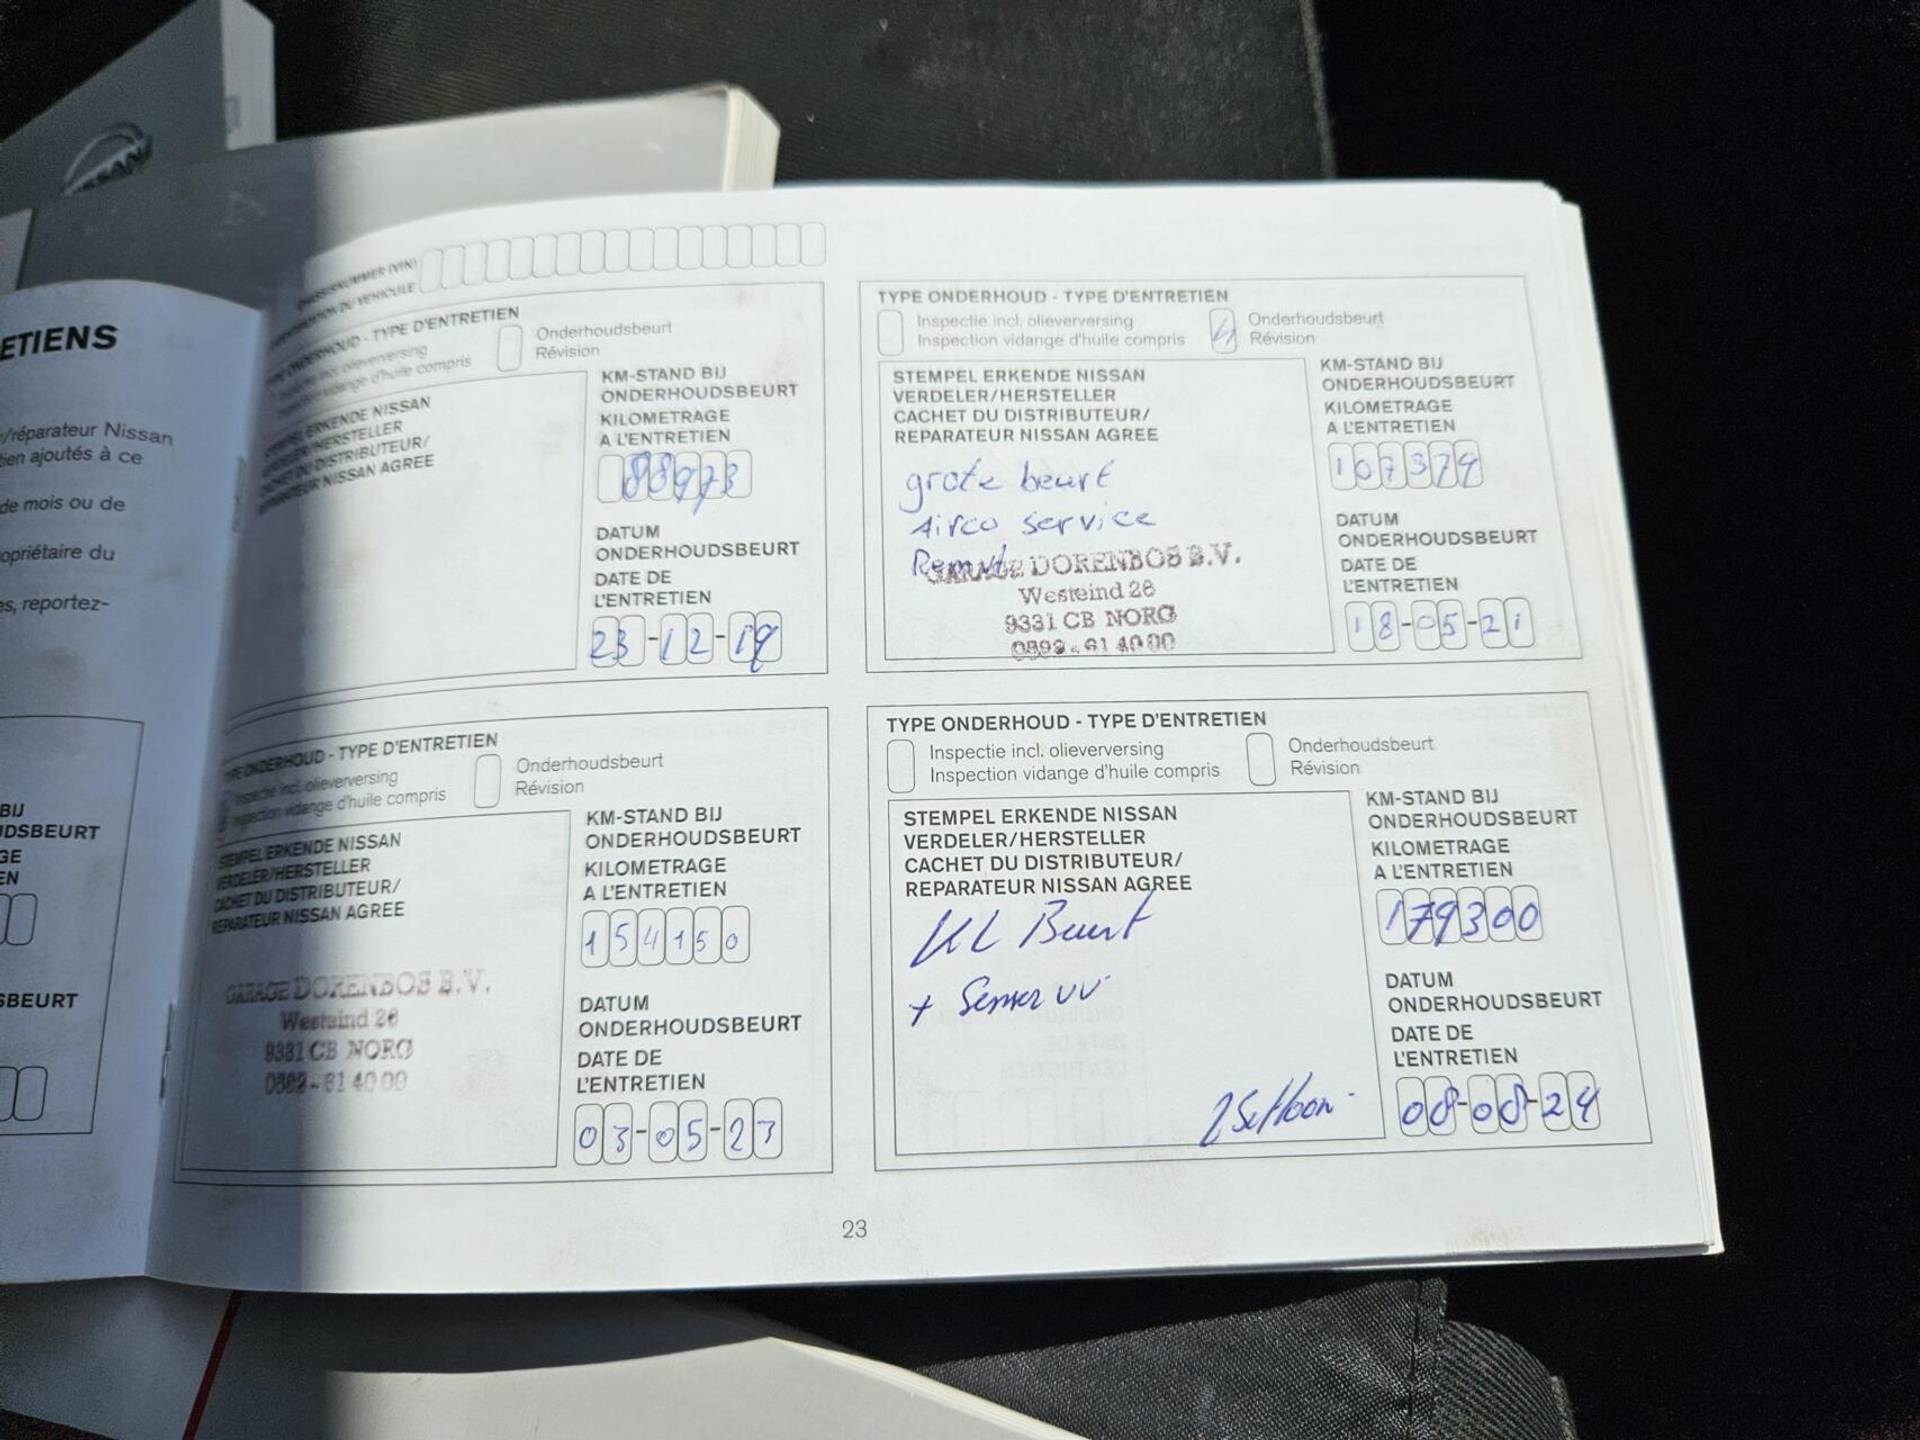 NISSAN
ETIENS
/réparateur Nissan
ien ajoutés à ce
de mois ou de
opriétaire du
es, reportez-
BIJ
DSBEURT
GE
EN
SBEURT
CHASSISNUMMER (VIN)
DU VEHICULE
TYPE ONDERHOUD - TYPE D'ENTRETIEN
Inspectie incl. olieverversing
Inspection vidange d'huile compris
Onderhoudsbeurt
Révision
STEMPEL ERKENDE NISSAN
VERDELER/HERSTELLER
CACHET DU DISTRIBUTEUR/
REPARATEUR NISSAN AGREE
KM-STAND BIJ
ONDERHOUDSBEURT
KILOMETRAGE
A L'ENTRETIEN
88973
DATUM
ONDERHOUDSBEURT
DATE DE
L'ENTRETIEN
23-12-19
TYPE ONDERHOUD - TYPE D'ENTRETIEN
Inspectie incl. olieverversing
Inspection vidange d'huile compris
Onderhoudsbeurt
Révision
STEMPEL ERKENDE NISSAN
VERDELER/HERSTELLER
CACHET DU DISTRIBUTEUR/
REPARATEUR NISSAN AGREE
grote beurt
Airco service
GARAGE DORENBOS B.V.
Westeind 26
9331 CB NORG
KM-STAND BIJ
ONDERHOUDSBEURT
KILOMETRAGE
A L'ENTRETIEN
107374
DATUM
ONDERHOUDSBEURT
DATE DE
L'ENTRETIEN
18-05-21
TYPE ONDERHOUD - TYPE D'ENTRETIEN
Inspectie incl. olieverversing
Inspection vidange d'huile compris
Onderhoudsbeurt
Révision
STEMPEL ERKENDE NISSAN
VERDELER/HERSTELLER
CACHET DU DISTRIBUTEUR/
REPARATEUR NISSAN AGREE
GARAGE DORENBOS B.V.
Westeind 26
9331 CB NORG
KM-STAND BIJ
ONDERHOUDSBEURT
KILOMETRAGE
A L'ENTRETIEN
154150
DATUM
ONDERHOUDSBEURT
DATE DE
L'ENTRETIEN
03-05-23
TYPE ONDERHOUD - TYPE D'ENTRETIEN
Inspectie incl. olieverversing
Inspection vidange d'huile compris
Onderhoudsbeurt
Révision
STEMPEL ERKENDE NISSAN
VERDELER/HERSTELLER
CACHET DU DISTRIBUTEUR/
REPARATEUR NISSAN AGREE
KL Beurt
KM-STAND BIJ
ONDERHOUDSBEURT
KILOMETRAGE
A L'ENTRETIEN
179300
DATUM
ONDERHOUDSBEURT
DATE DE
L'ENTRETIEN
08-08-24
23